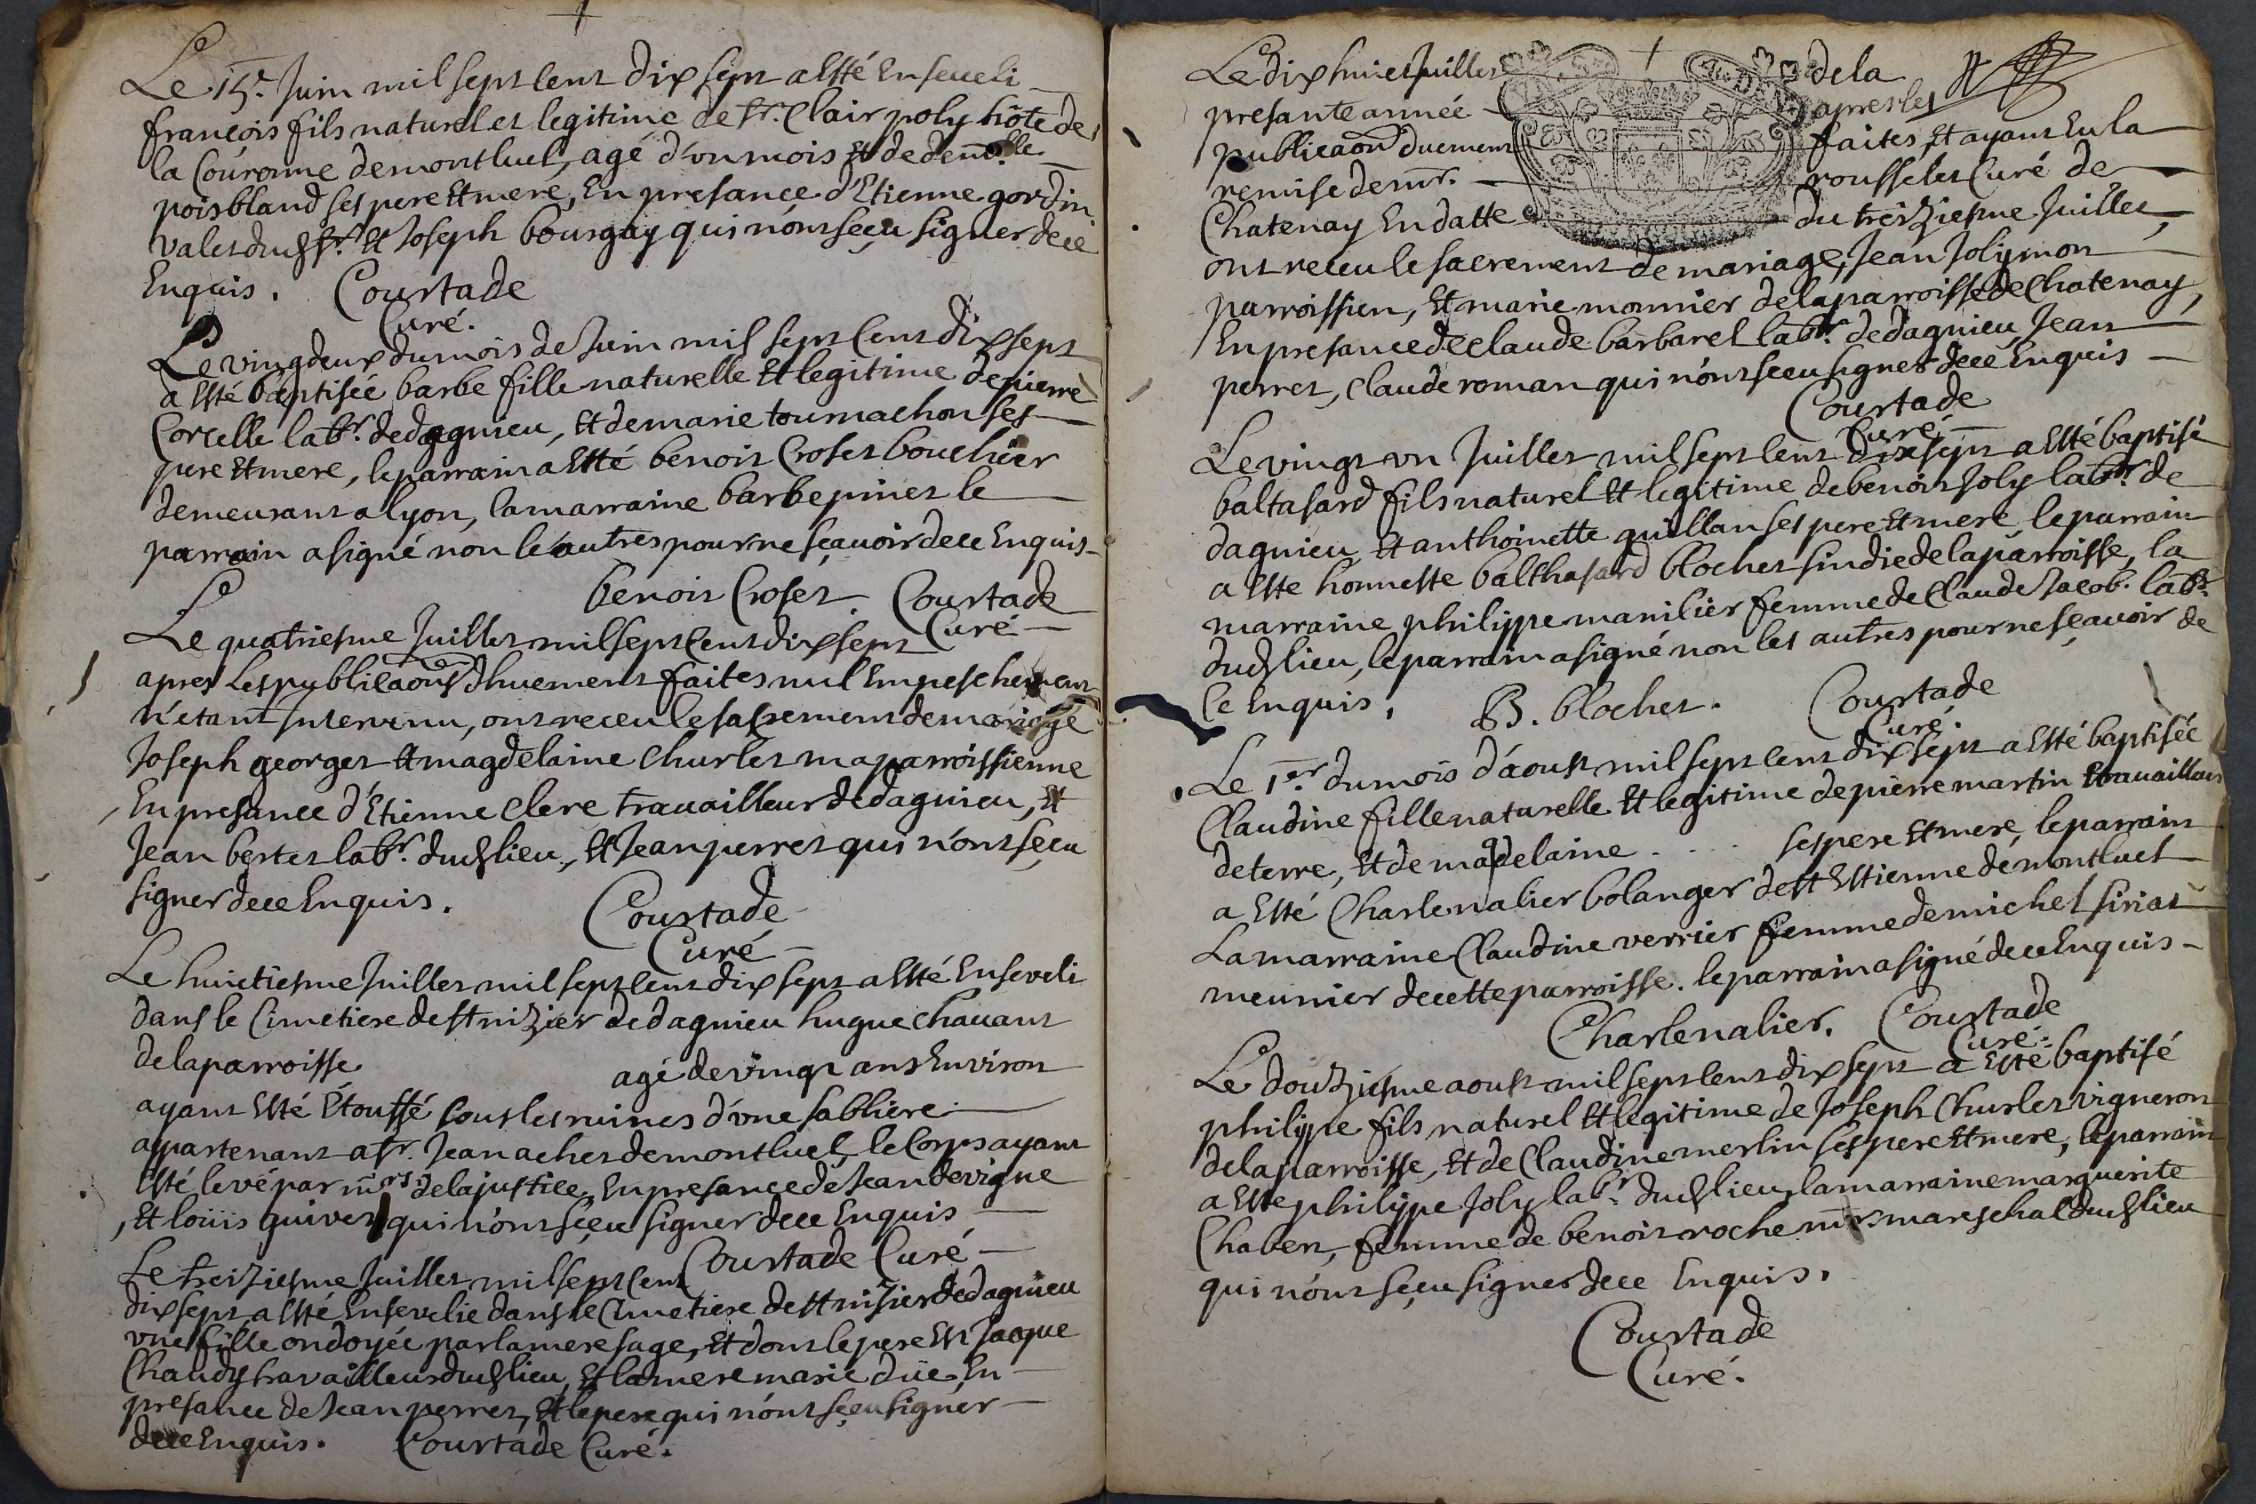 Le 15e. Juin mil sept cent dix sept a esté Enseveli
françois fils naturel et legitime de Sr. Clair poly hôte de
la Couronne de montluel, agé d'un mois Et de demlle
poisbland ses pere Et mere, En presance d'Etienne gordin
valet dud Sr. Et Joseph bourgay qui n'ont sçeu signer de ce
Enquis. Courtade
Curé.
Le vingdeux du mois de Juin mil sept Cent dix sept
a Esté baptisée barbe fille naturelle Et legitime de pierre
Corcelle labr. de dagnieu, Et de marie tournachon ses
pere Et mere, le parrain a Esté benoit Croset bouchier
demeurant a lyon, la marraine barbe pinet le
parrain a signé non le autres pour ne sçavoir de ce Enquis
benoit Croset. Courtade
Curé
Le quatriesme Juillet mil sept Cent dix sept
apres Les publicaons dhuement faites nul Empeschement
n'etant Intervenu, ont receu le sacrement de mariage
Joseph georget Et magdelaine Churlet ma parroissienne
En presance d'Etienne Clerc travailleur de dagnieu, Et
Jean bertet labr. dud lieu, Et Jean perret qui n'ont sçeu
signer de ce Enquis.
Courtade
Curé
Le huictiesme Juillet mil sept cent dix sept a Esté Enseveli
dans le Cimetiere de St nizier de dagnieu hugue Chavant
de la parroisse agé de vingt ans Environ
ayant Esté Étouffé sous les ruines d'une sabliere
appartenant a Sr. Jean achet de montluel, le Corps ayant
Esté levé par mrs. de la justice, En presance de Jean devigne
, Et loüis guivet qui n'ont sçeu signer de ce Enquis
Courtade Curé
Le treiziesme Juillet mil sept cent
dix sept a Esté Ensevelie dans le Cimetiere de St nizier de dagnieu
une fille ondoyée par la mere sage, Et dont le pere Est Jacque
Chaudy travailleur dud lieu, Et la mere marie düe, En
presance de Jean perret, Et le pere qui n'ont sçeu signer
de ce Enquis. Courtade Curé.
Le dix huict Juillet de la
presante année apres les
publicaon duement faites, Et ayant Eu la
remise de mr. rousselet Curé de
Chatenay En datte du treiziesme Juillet,
ont receu le sacrement de mariage, Jean Joly mon
parroissien, Et marie monnier de la parroisse de Chatenay,
En presance de claude barbaret labr. de dagnieu, Jean
perret, Claude roman qui n'ont sceu signer de ce Enquis
Courtade
Curé
Le vingt un Juillet mil sept cent dix sept a Esté baptisé
baltasard fils naturel Et legitime de benoit Joly labr. de
dagnieu, Et anthoinette guillan ses pere Et mere, le parrain
a Esté honneste balthasard blochet sindic de la parroisse, la
marraine philippe manilier femme de Claude Jacob. labr.
dud lieu, le parrain a signé non les autres pour ne sçavoir de
Ce Enquis. B. blochet. Courtade
Curé.
Le 1er. du mois d'aoust mil sept cent dix sept a Esté baptisée
Claudine fille naturelle Et legitime de pierre martin travailleur
de terre, Et de magdelaine .... ses pere Et mere, le parrain
a Esté Charle nalier bolanger de St Estienne de montluel
La marraine Claudine verrier femme de michel siriat
meunier de cette parroisse. le parrain a signé de ce Enquis
Charle nalier. Courtade
Curé.
Le douziesme aoust mil sept cent dix sept a Esté baptisé
philippe fils naturel Et legitime de Joseph Churlet vigneron
de la parroisse, Et de Claudine merlin ses pere Et mere, le parrain
a Este philippe Joly labr. dud lieu, la marraine marguerite
Chabert, femme de benoit roche mr mareschal dud lieu
qui n'ont sçeu signer de ce Enquis.
Courtade
Curé.